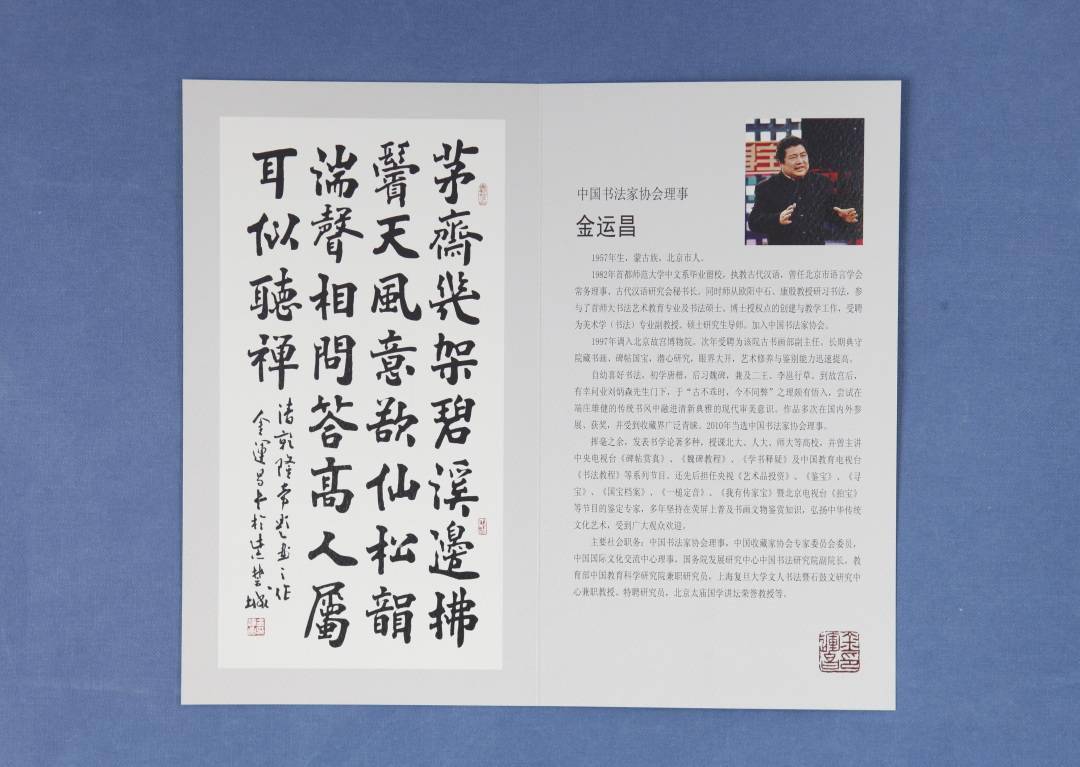 茅齋幾架碧溪邊拂
鬢天風意欲仙松韻
湍聲相問答高人屬
耳似聽禪
清乾隆帝題畫之作
金運昌書於
中国书法家协会理事
金运昌
1957年生，蒙古族，北京市人。
1982年首都师范大学中文系毕业留校，执教古代汉语，曾任北京市语言学会
常务理事、古代汉语研究会秘书长。同时师从欧阳中石、康殷教授研习书法，参
与了首师大书法艺术教育专业及书法硕士、博士授权点的创建与教学工作，受聘
为美术学（书法）专业副教授、硕士研究生导师。加入中国书法家协会。
1997年调入北京故宫博物院。次年受聘为该院古书画部副主任。长期典守
院藏书画、碑帖国宝，潜心研究，眼界大开，艺术修养与鉴别能力迅速提高。
自幼喜好书法，初学唐楷，后习魏碑，兼及二王、李邕行草。到故宫后，
有幸问业刘炳森先生门下，于“古不乖时，今不同弊”之理颇有悟入，尝试在
端庄雄健的传统书风中融进清新典雅的现代审美意识。作品多次在国内外参
展、获奖，并受到收藏界广泛青睐。2010年当选中国书法家协会理事。
挥毫之余，发表书学论著多种，授课北大、人大、师大等高校，并曾主讲
中央电视台《碑帖赏真》、《魏碑教程》、《学书释疑》及中国教育电视台
《书法教程》等系列节目。还先后担任央视《艺术品投资》、《鉴宝》、《寻
宝》、《国宝档案》、《一槌定音》、《我有传家宝》暨北京电视台《拍宝》
等节目的鉴定专家，多年坚持在荧屏上普及书画文物鉴赏知识，弘扬中华传统
文化艺术，受到广大观众欢迎。
主要社会职务：中国书法家协会理事，中国收藏家协会专家委员会委员，
中国国际文化交流中心理事，国务院发展研究中心中国书法研究院副院长，教
育部中国教育科学研究院兼职研究员，上海复旦大学文人书法暨石鼓文研究中
心兼职教授、特聘研究员，北京太庙国学讲坛荣誉教授等。
金運昌印